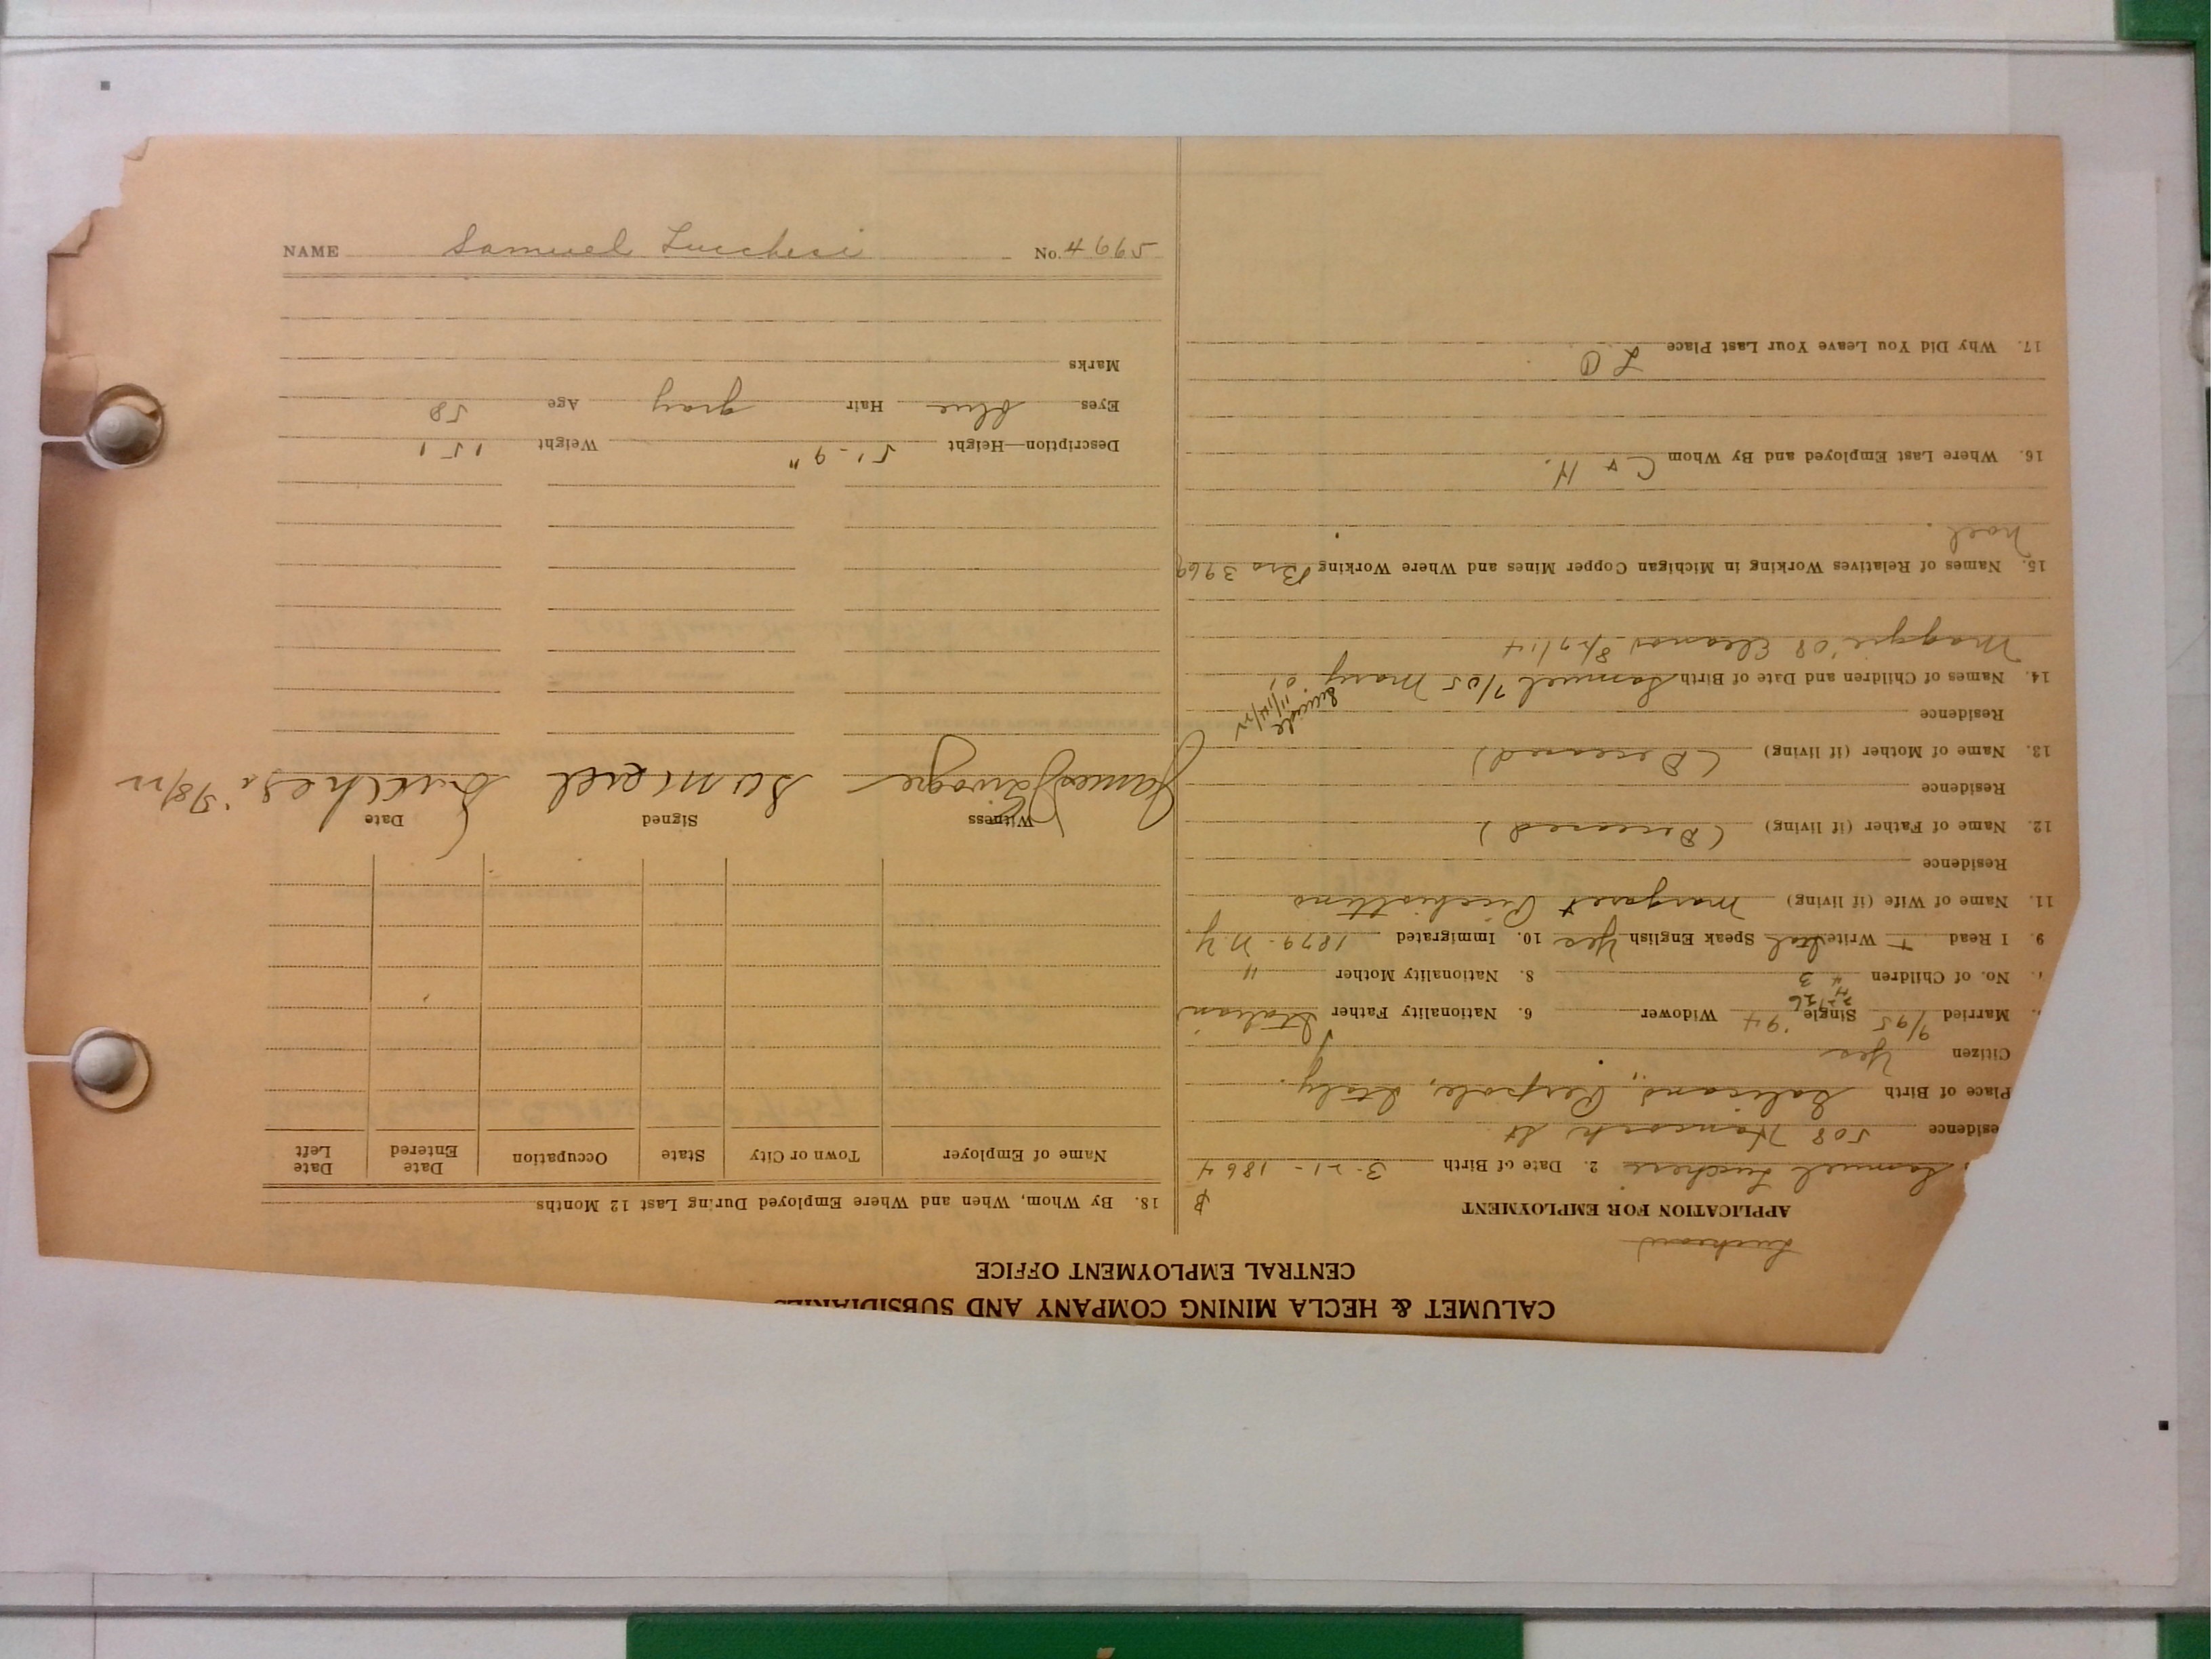 CALUMET & HECLA MINING COMPANY AND SUBSIDIARIES
CENTRAL EMPLOYMENT OFFICE
APPLICATION FOR EMPLOYMENT
Samuel Lucchesi 2. Date of Birth 3-21-1864
esidence 508 Hancock St
Place of Birth Italy.
Citizen Yes
Married 9/95 Single '94 Widower 6. Nationality Father Italian
No. of Children 4 3 8. Nationality Mother "
9. I Read + Write Ital Speak English Yes 10. Immigrated 1879 - N.Y
11. Name of Wife (if living) Margaret
Residence
12. Name of Father (if living) (Deceased)
Residence
13. Name of Mother (if living) (Deceased)
Residence
14. Names of Children and Date of Birth Samuel 7/05 Mary '01
Maggie '08 Eleanor 8/29/14
15. Names of Relatives Working in Michigan Copper Mines and Where Working Bro 3969
Noel
16. Where Last Employed and By Whom C + H.
17. Why Did You Leave Your Last Place L O
18. By Whom, When and Where Employed During Last 12 Months
Name of Employer Town or City State Occupation Date Entered Date Left
Witness Signed Date
James Samuel Lucchesi 5/8/22
Description—Height 5'-9" Weight 151
Eyes blue Hair gray Age 58
Marks
NAME Samuel Lucchesi No. 4665